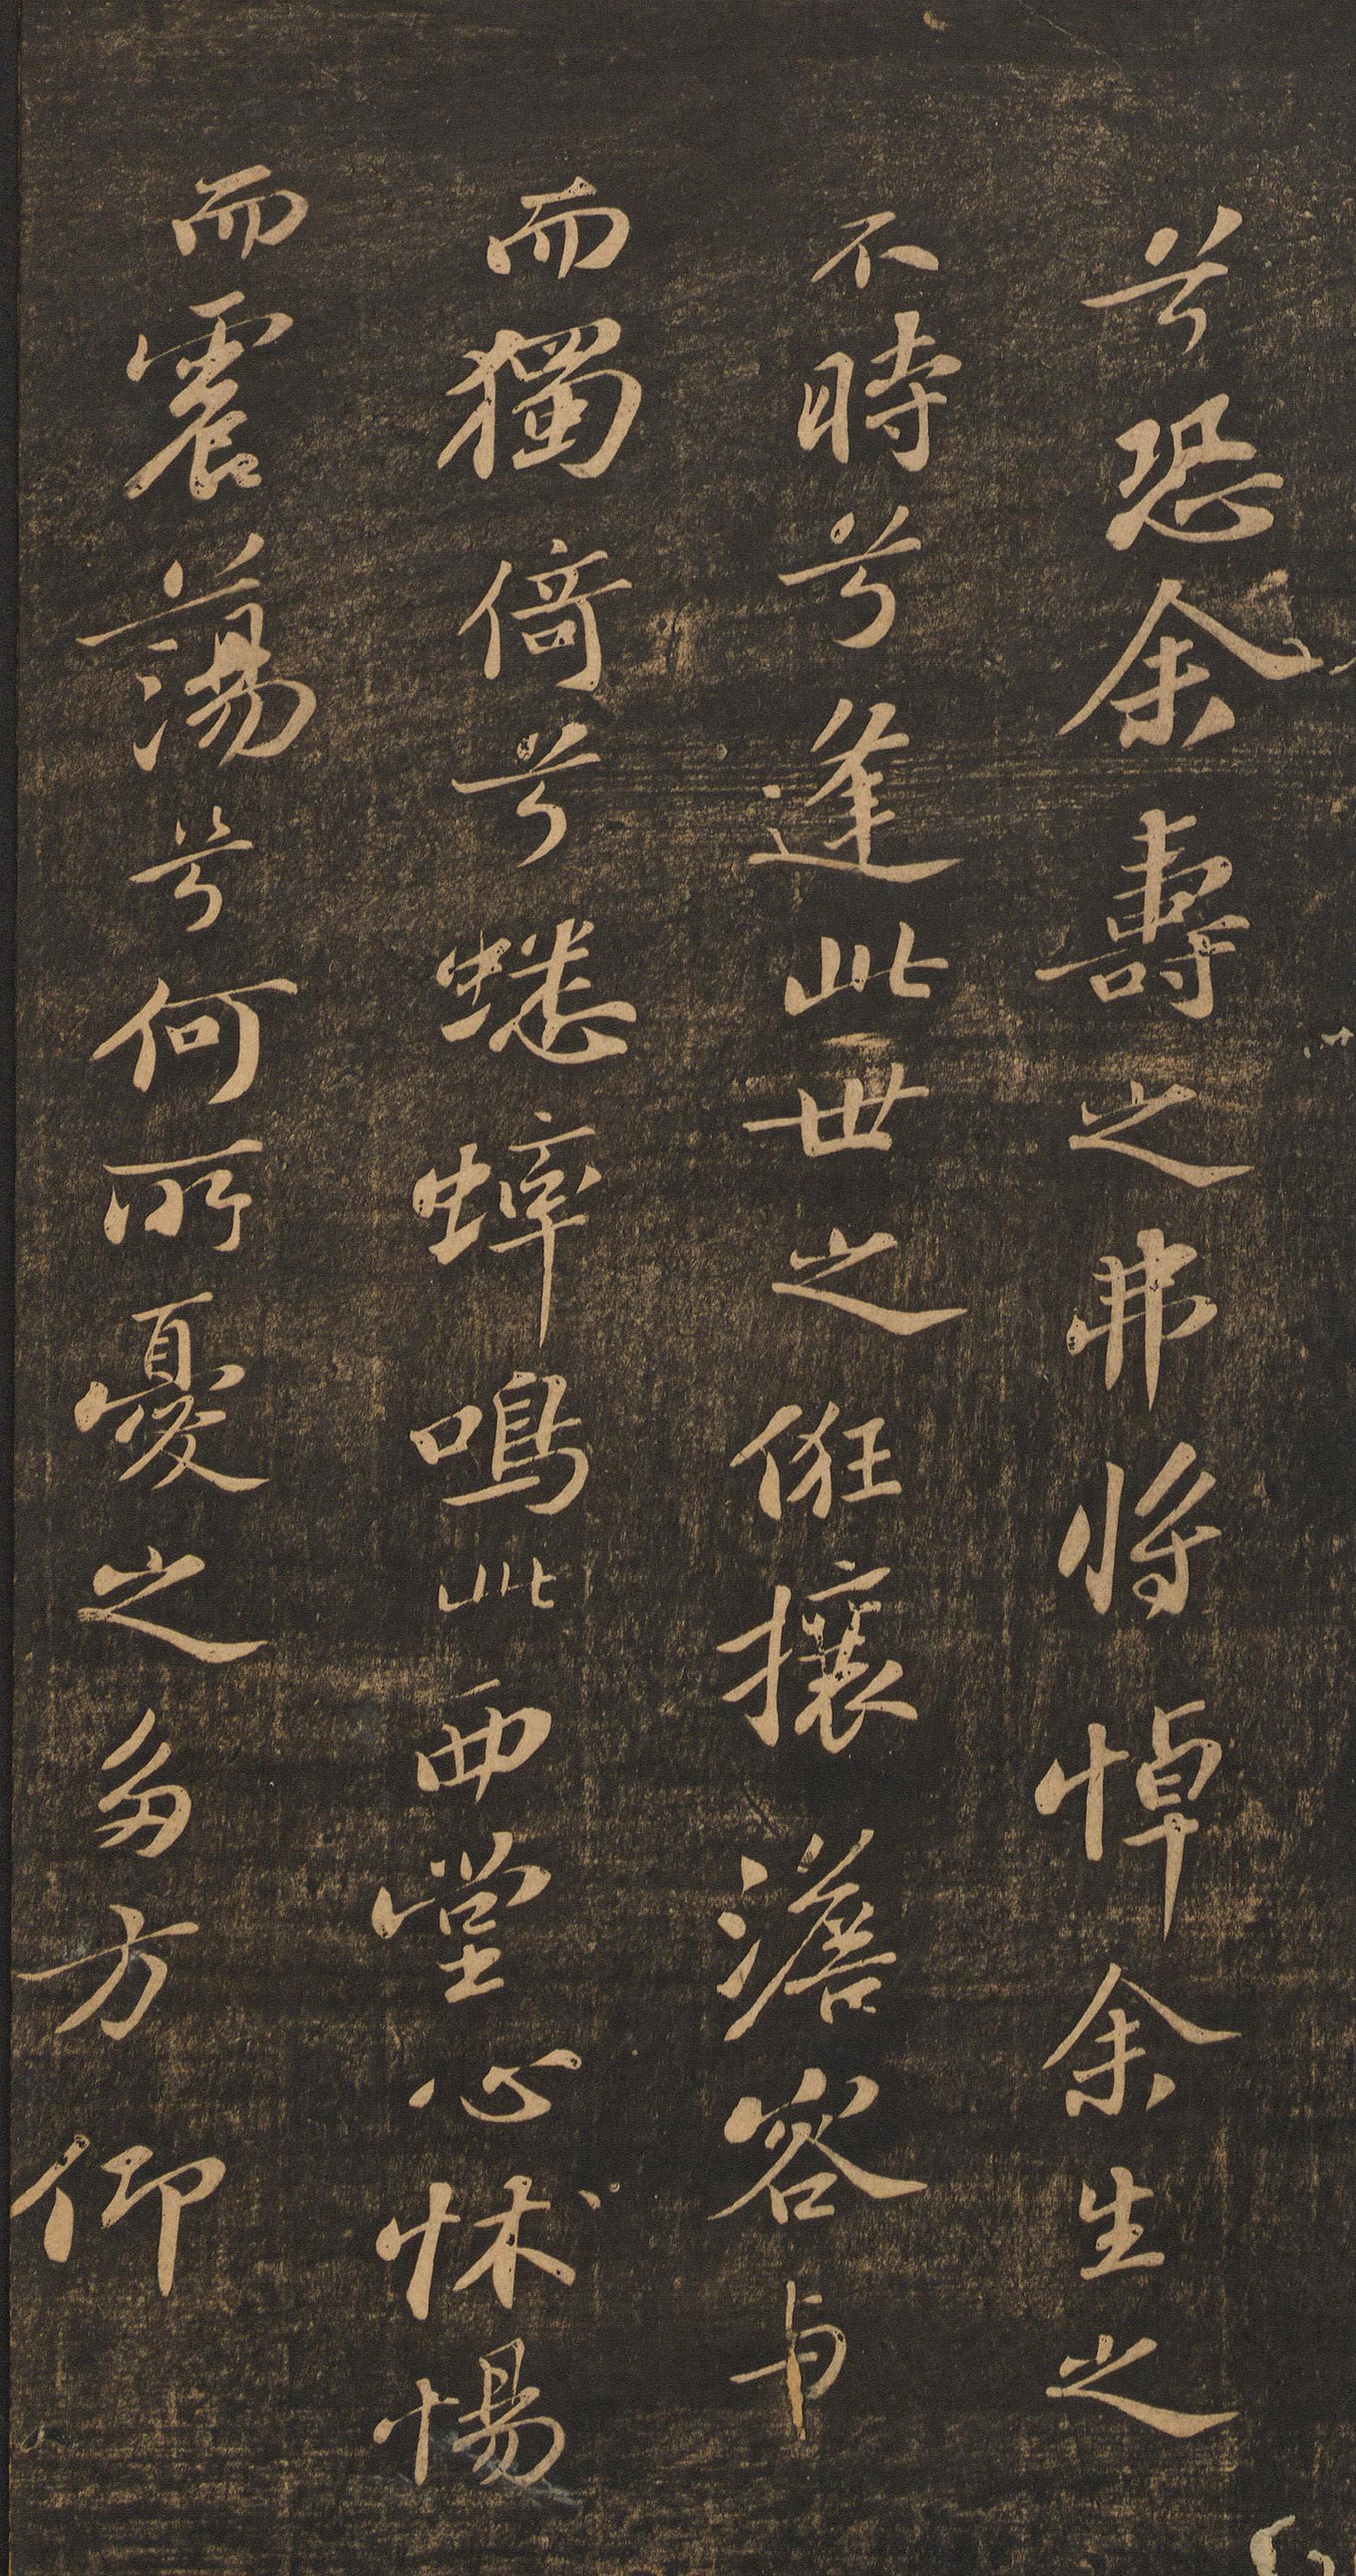 兮恐余壽之弗將悼余生之
不時兮逢此世之俇攘澹容与
而獨倚兮蟋蟀鳴此西堂心怵惕
而震蕩兮何所憂之多方仰